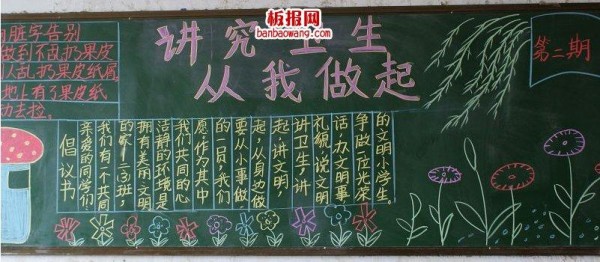 板报网
banbaowang.com
脏字告别
做到不乱扔果皮
人乱扔果皮纸屑
地上有了果皮纸
动去捡。
讲究卫生
从我做起
第二期
倡议书
亲爱的同学们
我们有一个共同
的家—二(3)班,
拥有美丽文明
洁静的环境是
我们共同的心
愿,作为其中
的一员,我们
要从小事做
起,从身边做
起,讲文明,
讲卫生,讲
礼貌,说文明
话,办文明事
争做一位光荣
的文明小学生。